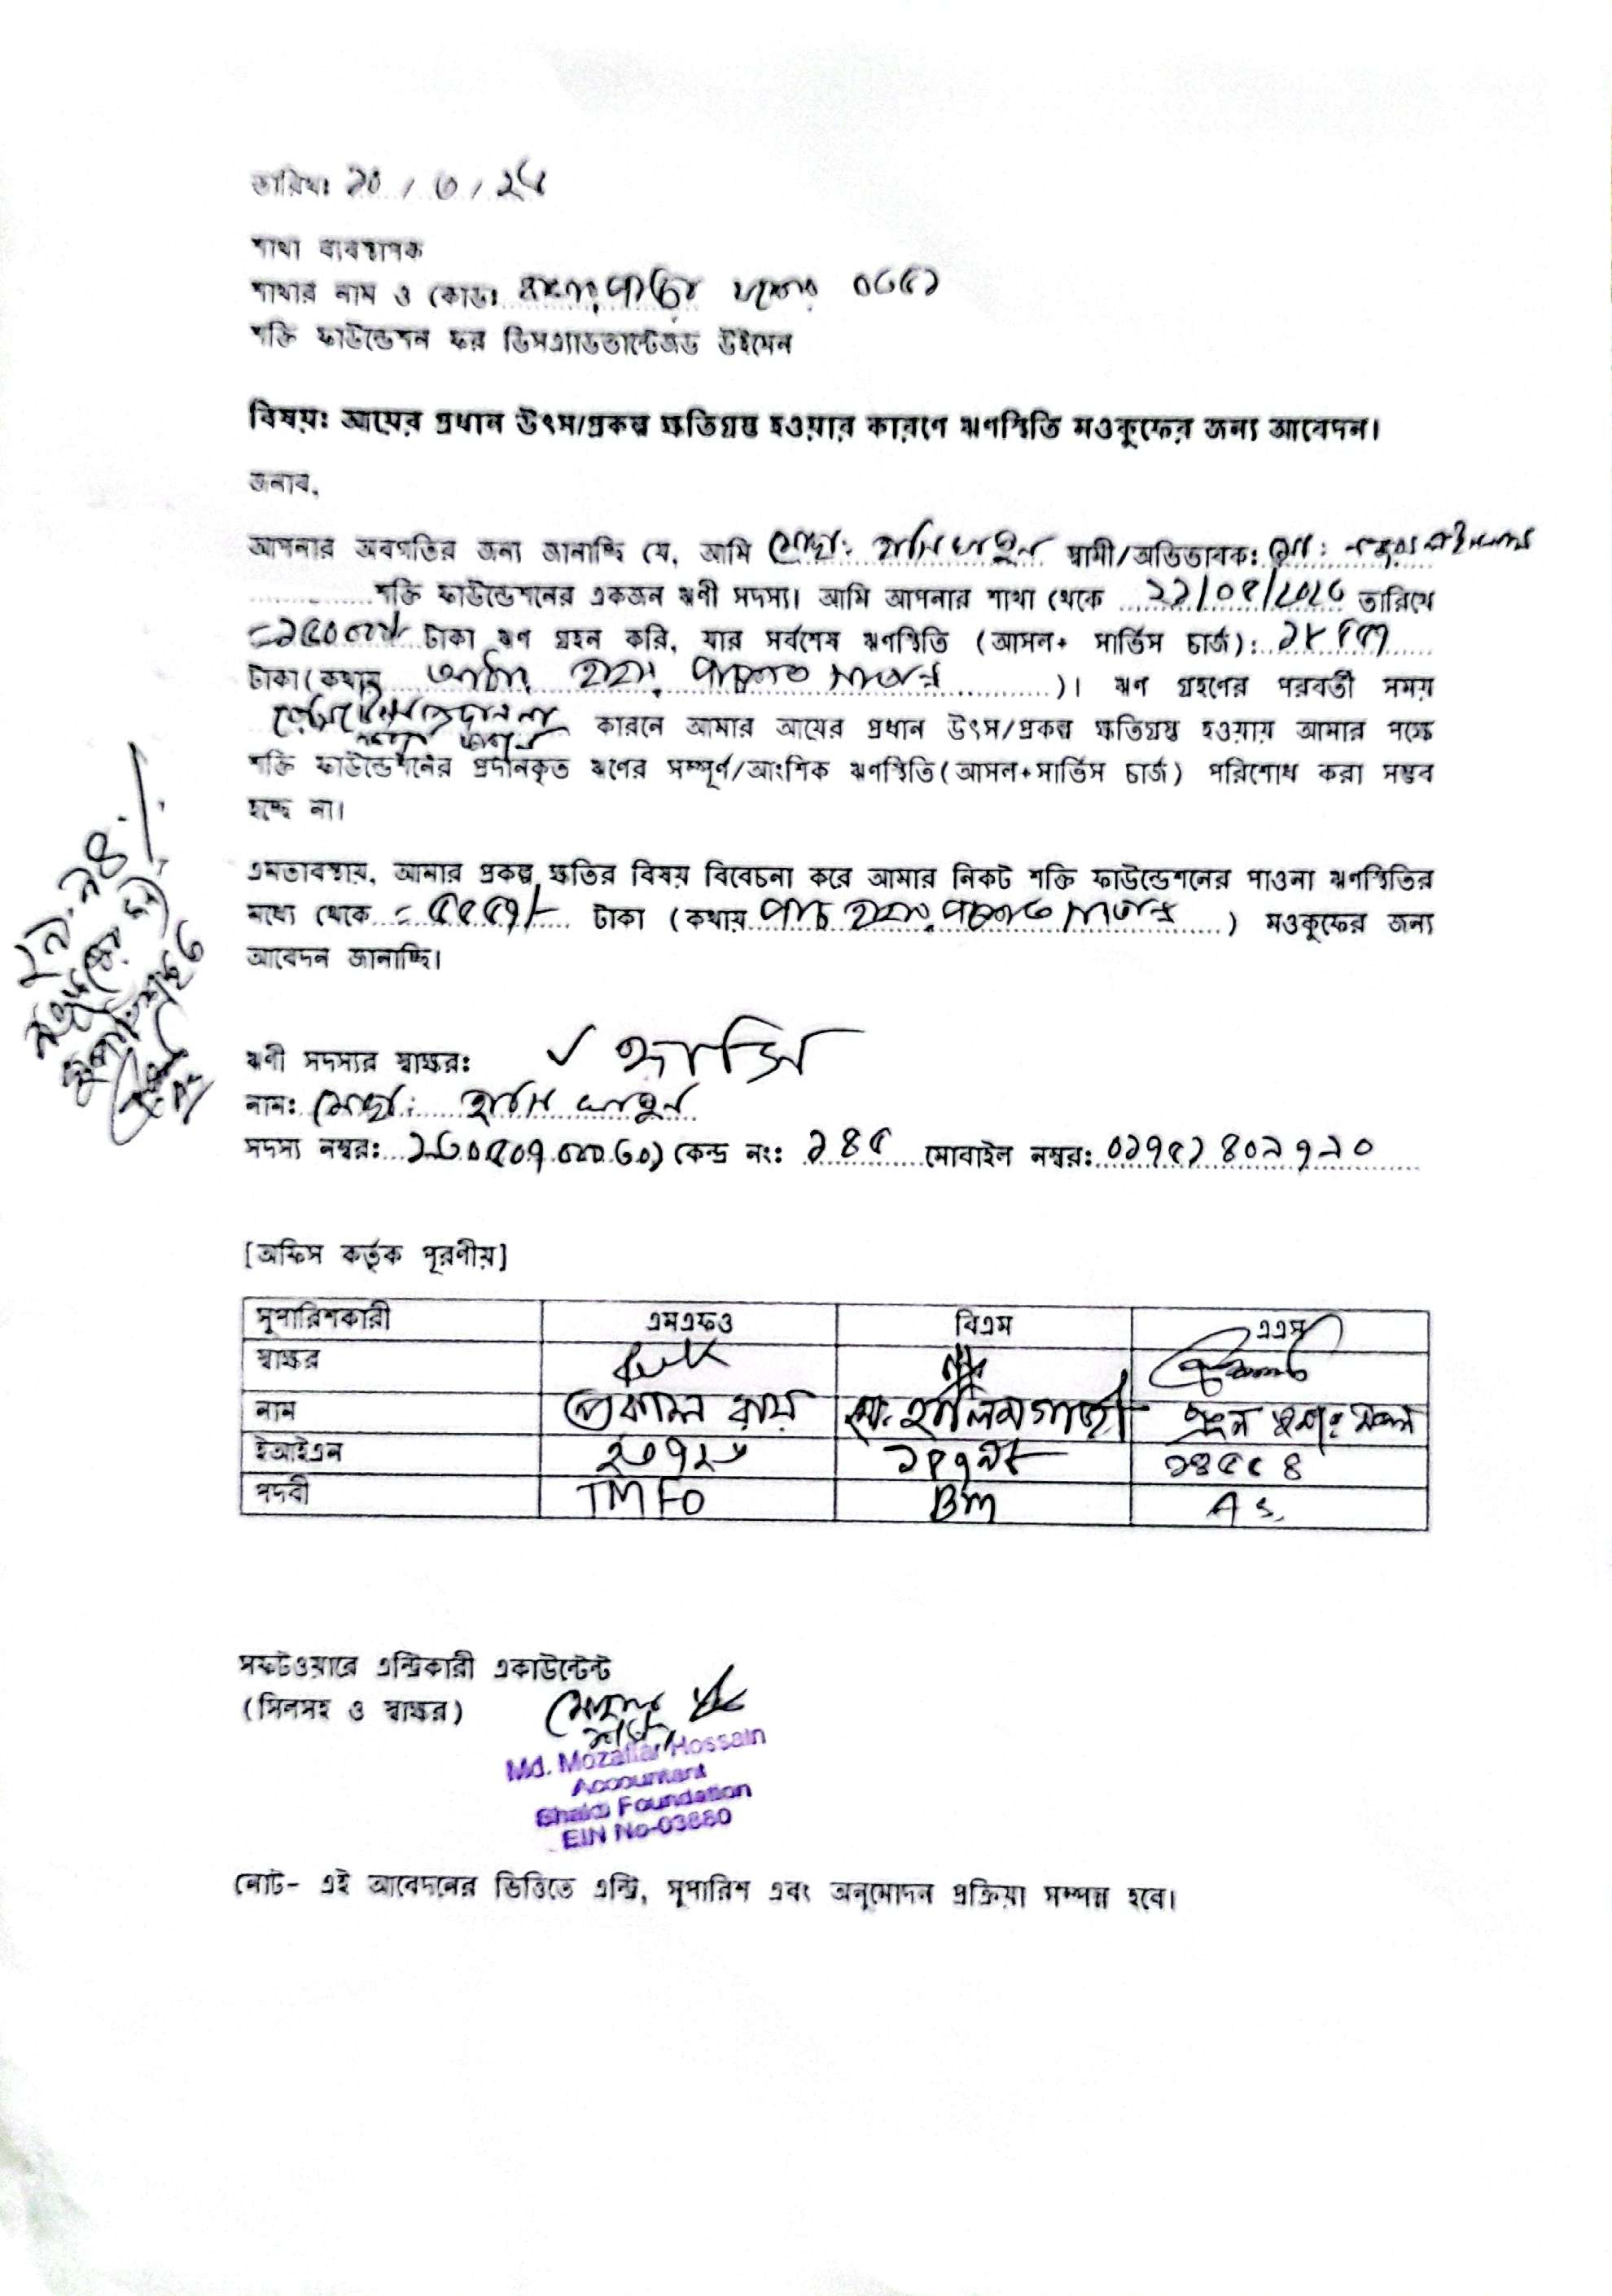 তারিখঃ ১০ / ৩ / ২৫
শাখা ব্যবস্থাপক
শাখার নাম ও কোডঃ যশোর ০৩৫১
শক্তি ফাউন্ডেশন ফর ডিসএ্যাডভান্টেজড উইমেন
বিষয়ঃ আয়ের প্রধান উৎস/প্রকল্প ক্ষতিগ্রস্ত হওয়ার কারণে ঋণস্থিতি মওকুফের জন্য আবেদন।
জনাব,
আপনার অবগতির জন্য জানাচ্ছি যে, আমি মোছা: হাসি খাতুন স্বামী/অভিভাবক: মো:
শক্তি ফাউন্ডেশনের একজন ঋণী সদস্য। আমি আপনার শাখা থেকে তারিখে
টাকা ঋণ গ্রহন করি, যার সর্বশেষ ঋণস্থিতি (আসল+ সার্ভিস চার্জ):
টাকা (কথায় হাজার পাঁচশত সাতান্ন )। ঋণ গ্রহণের পরবর্তী সময়
কারনে আমার আয়ের প্রধান উৎস/প্রকল্প ক্ষতিগ্রস্ত হওয়ায় আমার পক্ষে
শক্তি ফাউন্ডেশনের প্রদানকৃত ঋণের সম্পূর্ণ/আংশিক ঋণস্থিতি(আসল+সার্ভিস চার্জ) পরিশোধ করা সম্ভব
হচ্ছে না।
এমতাবস্থায়, আমার প্রকল্প ক্ষতির বিষয় বিবেচনা করে আমার নিকট শক্তি ফাউন্ডেশনের পাওনা ঋণস্থিতির
মধ্যে থেকে = ৫৫৫৭/- টাকা (কথায় পাঁচ হাজার পাঁচশত সাতান্ন ) মওকুফের জন্য
আবেদন জানাচ্ছি।
ঋণী সদস্যর স্বাক্ষরঃ হাসি
নামঃ মোছা: হাসি খাতুন
সদস্য নম্বরঃ কেন্দ্র নংঃ ১৪৫ মোবাইল নম্বরঃ ০১৭৫১৪০১৭১০
[অফিস কর্তৃক পূরণীয়]
সুপারিশকারী এমএফও বিএম এএস
স্বাক্ষর
নাম প্রকাশ রায়
ইআইএন
পদবী TMFO BM AS
সফটওয়ারে এন্ট্রিকারী একাউন্টেন্ট
(সিলসহ ও স্বাক্ষর)
Md. Mozaffar Hossain
Accountant
Shakti Foundation
EIN No-03880
নোট- এই আবেদনের ভিত্তিতে এন্ট্রি, সুপারিশ এবং অনুমোদন প্রক্রিয়া সম্পন্ন হবে।